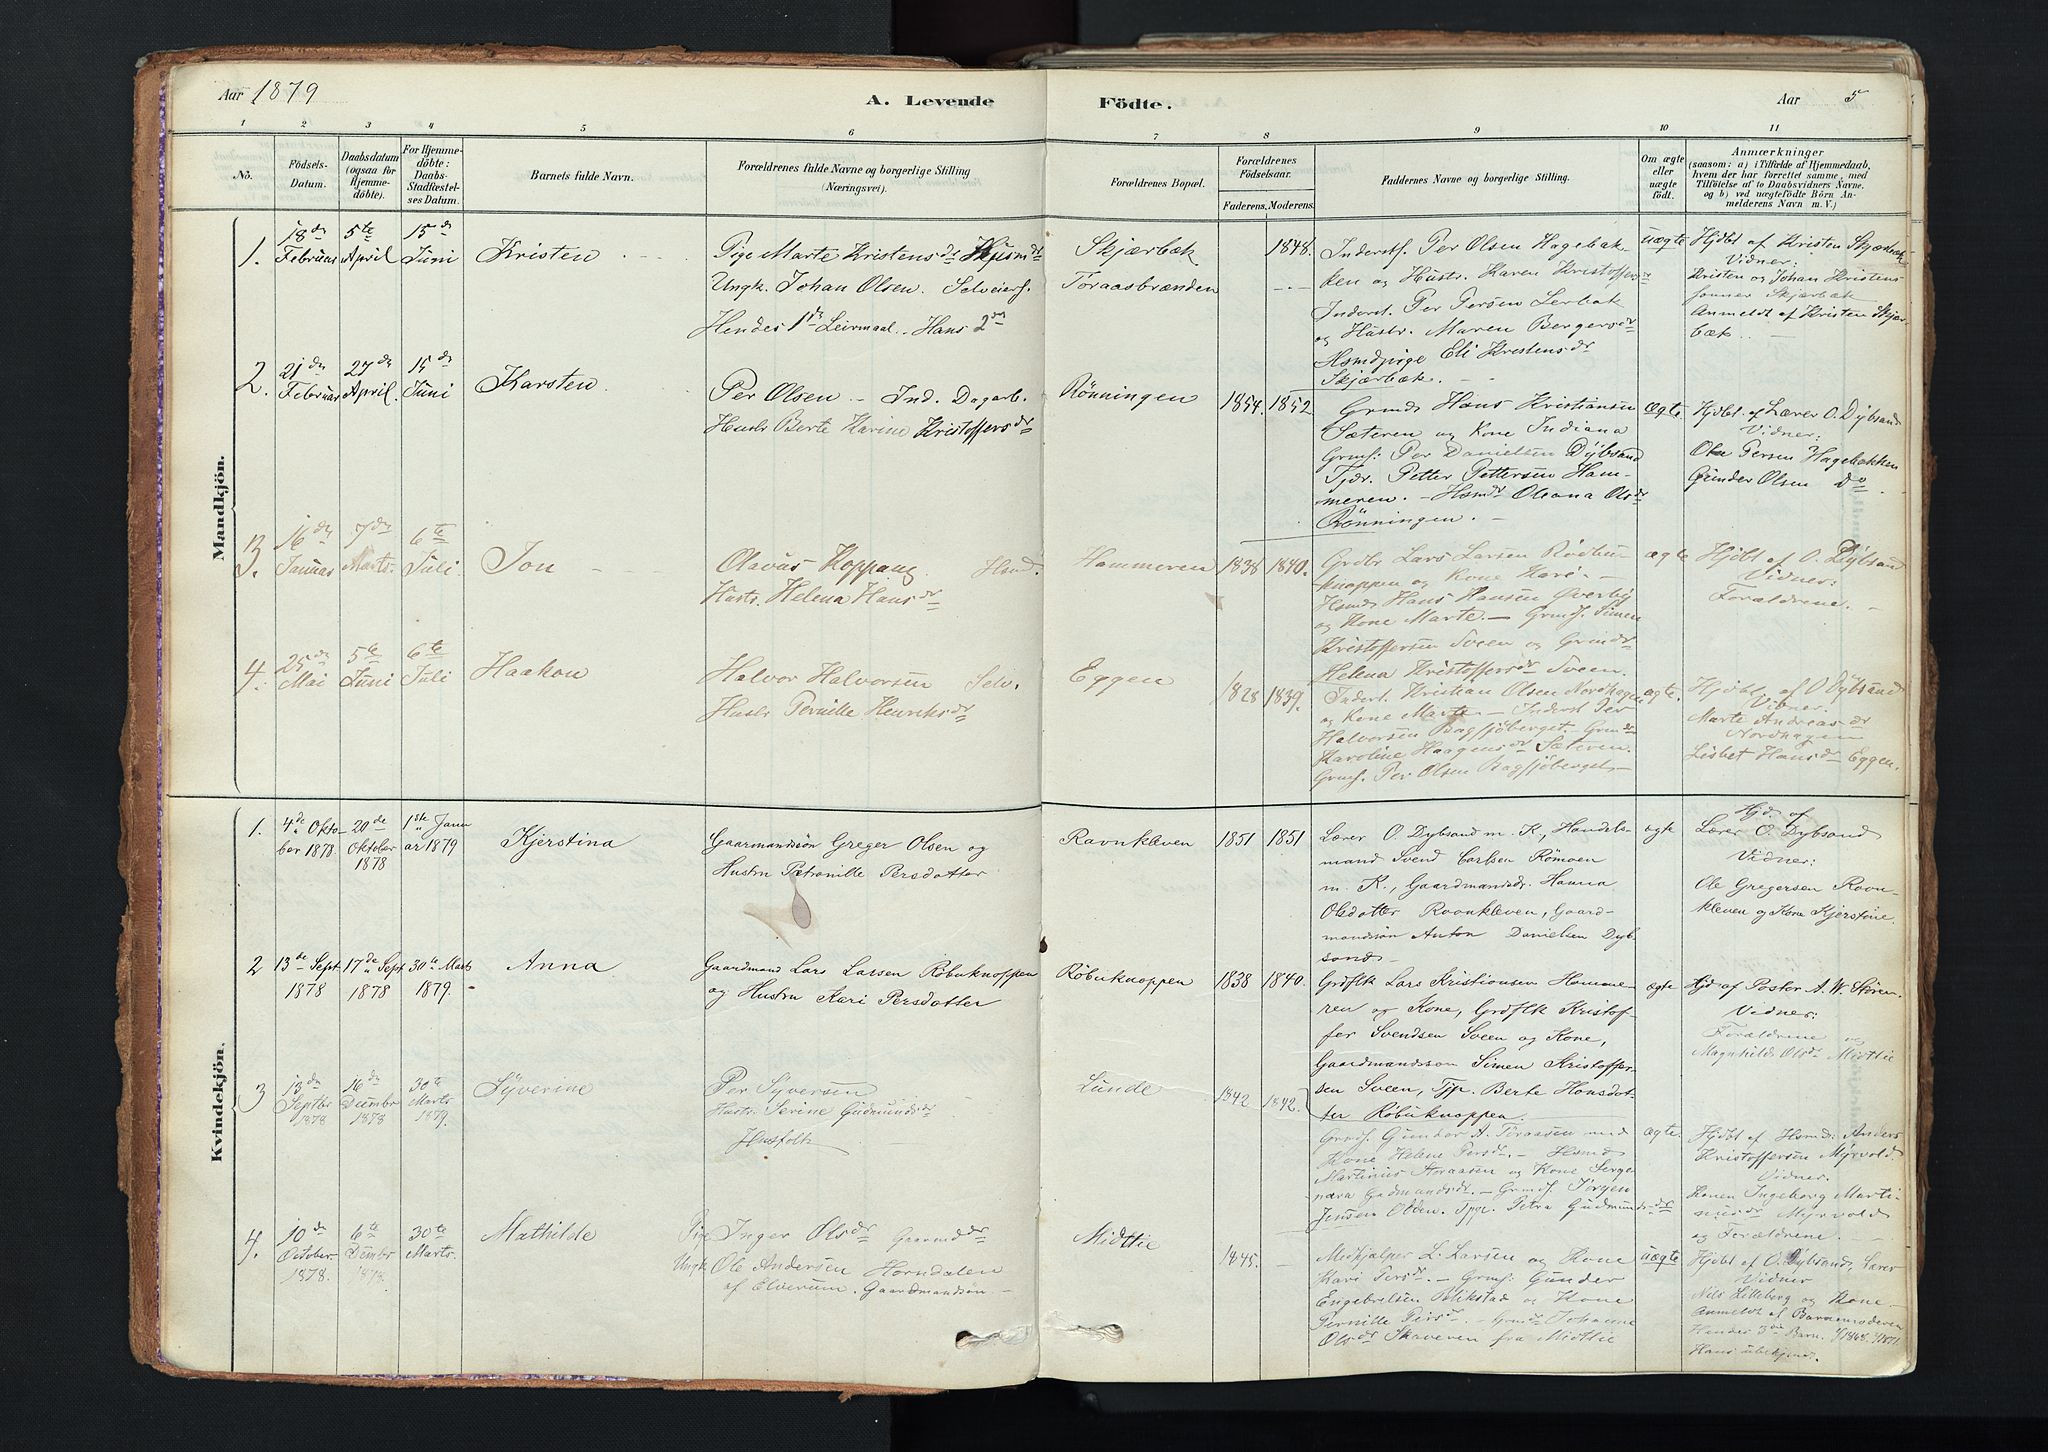 Aar 1879
A. Levende
Födte.
Aar 5
1 2 3 4 5 6 7 8 9 10 11
No.
Födsels-
Datum.
Daabsdatum
(ogsaa for
Hjemme-
döbte).
For Hjemme-
döbte:
Daabs-
Stadfæstel-
ses Datum.
Barnets fulde Navn.
Forældrenes fulde Navne og borgerlige Stilling
(Næringsvei).
Forældrenes Bopæl.
Forældrenes
Födselsaar.
Faderens.
Moderens.
Faddernes Navne og borgerlige Stilling.
Om ægte
eller
uægte
födt.
Anmærkninger
(saasom: a) i Tilfælde af Hjemmedaab,
hvem der har forrettet samme, med
Tilföielse af to Daabsvidners Navne,
og b) ved uægtefödte Börn An-
melderens Navn m. V.)
Mandkjön.
1.
18de
Februar
5te
April
15de
Juni
Kristen
Pige Marte Kristensdr Husmdr
Ungk. Johan Olsen. Selveiers.
Hendes 1ste Leirmaal. Hans 2det
Skjærbæk
Toraasbrænden
1848.
Inderstf. Per Olsen Hagebak-
ken og Hustr. Karen Kristoffersdr
Inderst. Per Persen Lerbak
og Hustr. Maren Bergersdr
Hsmdpige Eli Kristensdr
Skjærbæk.
uægte
Hjdbt af Kristen Skjærbæk
Vidner:
Kristen og Johan Kristen-
sönner Skjærbæk
Anmeldt af Kristen Skjær-
bæk.
2.
21de
Februar
27de
April.
15de
Juni
Karsten
Per Olsen – Ind. Dagarb.
Hustr Berte Karine Kristoffersdr
Rönningen
1854.
1852
Grmd. Hans Kristiansen
Sæteren og Kone Indiana
Grmf. Per Danielsen Dÿbsand
Tjdr. Petter Pettersen Ham-
meren. – Hsmdr Oleana Olsdr
Rönningen.
ægte
Hjdbt. af Lærer O. Dÿbsand
Vidner:
Ola Persen Hagebakken
Gunder Olsen Do
3.
16de
Januar
7de
Marts.
6te
Juli
Jon
Olavus Koppang. Hsmd.
Hustr. Helena Hansdr
Hammeren
1838
1840.
Grdbr Lars Larsen Rödbu-
knappen og Kone Kari. –
Hsmd. Hans Hansen Øverbÿ
og Kone Marte. – Grmf. Simen
Kristoffersen Sveen og Grmdr
Helena Kristoffersdr Sveen.
ægte
Hjdbt af O. Dÿbsand
Vidner:
Forældrene. –
4.
25de
Mai
5te
Juni
6te
Juli
Haakon
Halvor Halvorsen Selv.
Hustr Pernille Henriksdr
Eggen
1828
1839.
Inderst. Kristian Olsen Nordhagen
og Kone Marte – Inderst Per
Halvorsen Bagsjöberget. – Grmdr
Karoline Haagensdr Sæteren.
Grmf. Per Olsen Bagsjöberget –
ægte.
Hjdbt. af O Dÿbsand
Vidner.
Marte Andreasdr
Nordhagen
Lisbet Hansdr Eggen.
Kvindekjön.
1.
4de Okto-
ber 1878.
20de
Oktober
1878
1ste Janu
ar 1879
Kjerstina
Gaarmandssön Greger Olsen og
Hustru Petronille Persdatter
Ravnkleven
1851
1851
Lærer O. Dybsand m. K., Handels-
mand Svend Carlsen Römoen
m. K., Gaardmandsdr. Hanna
Olsdatter Ravnkleven, Gaard-
mandssön Anton Danielsen Dyb-
sand –
ægte
Hjd. af
Lærer O. Dybsand
Vidner:
Ole Gregersen Ravn-
kleven og Kone Kjerstine.
2
13de Sept
1878
17de Sept
1878
30te Marts
1879.
Anna
Gaardmand Lars Larsen Röbuknappen
og Hustru Kari Persdatter
Röbuknappen
1838
1840.
Grdflk Lars Kristiansen Hamme-
ren og Kone, Grdflk Kristof-
fer Svendsen Sveen og Kone,
Gaardmandssön Simen Kristoffer-
sen Sveen, Tjp. Berte Hansdat-
ter Röbuknappen.
ægte
Hjd af Pastor A. W. Stören.
Vidner:
Forældrene og
Magnhild Olsdr Midttie
3
13de
Septbr
1878
16de
Dcmbr
1878
30te
Marts
1879.
Sÿverine
Per Sÿversen
Hustr. Serine Gudmundsdr
Husfolk
Lunde
1842
1842.
Grmf. Gunder A. Toraasen med
Kone Helene Persdr. – Hsmd
Martinius Storaasen og Kone
Gudmundsdr. – Grmdf. Jörgen
Jensen Olden. Tpg. Petra Gudmundsdr
ægte.
Hjdbt af Hsmd: Anders
Kristoffersen Mÿrvold.
Vidner.
Konen Ingeborg Marti-
nusdr Mÿrvold
og Forældrene. –
4.
10de
October
1878.
6te
Dcmbr
1878.
30te
Marts.
Mathilde
Pige Inger Olsdr Gaarmddr
Ungk Ole Andersen Horndalen
af Elverum. Gaardmandssön –
Midttie
1845.
Medhjælper L. Larsen og Kone
Kari Persdr. – Grmf. Gunder
Engebretsen Blikstad og Kone
Pernille Persdr. – Grmdr Johanne
Olsdr Skræveren fra Midttie
uægte
Hjdbt af O. Dÿbsand, Lærer
Vidner
Nils Lilleberg og Kone –
Anmeldt af Barnemoderen
Hendes 3die Barn.
Hans ubekjendt.